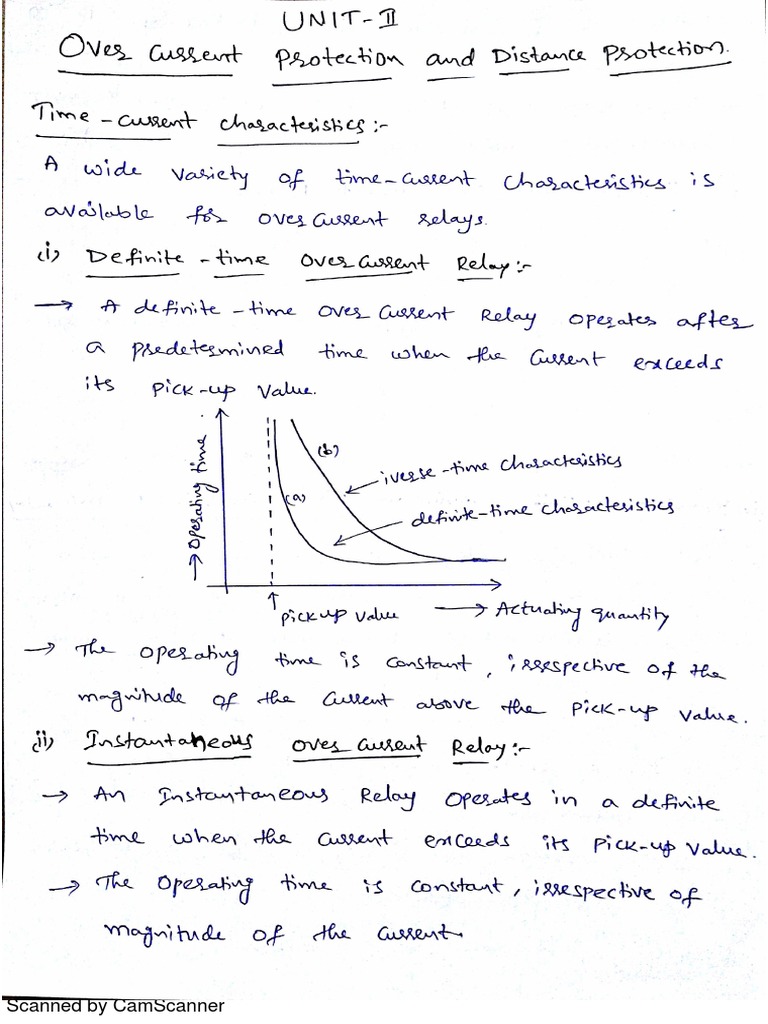 UNIT-II
Over current Protection and Distance Protection.
Time-current characteristics:-
A wide variety of time-current characteristics is
available for over current relays.
(i) Definite-time over current Relay:-
→ A definite-time over current Relay operates after
a predetermined time when the current exceeds
its pick-up value.
→ operating time
(b)
iverse-time characteristics
(a)
definite-time characteristics
↑ pick up value → Actuating quantity
→ The operating time is constant, irrespective of the
magnitude of the current above the pick-up value.
(ii) Instantaneous over current Relay:-
→ An Instantaneous Relay operates in a definite
time when the current exceeds its pick-up value.
→ The operating time is constant, irrespective of
magnitude of the current.
Scanned by CamScanner